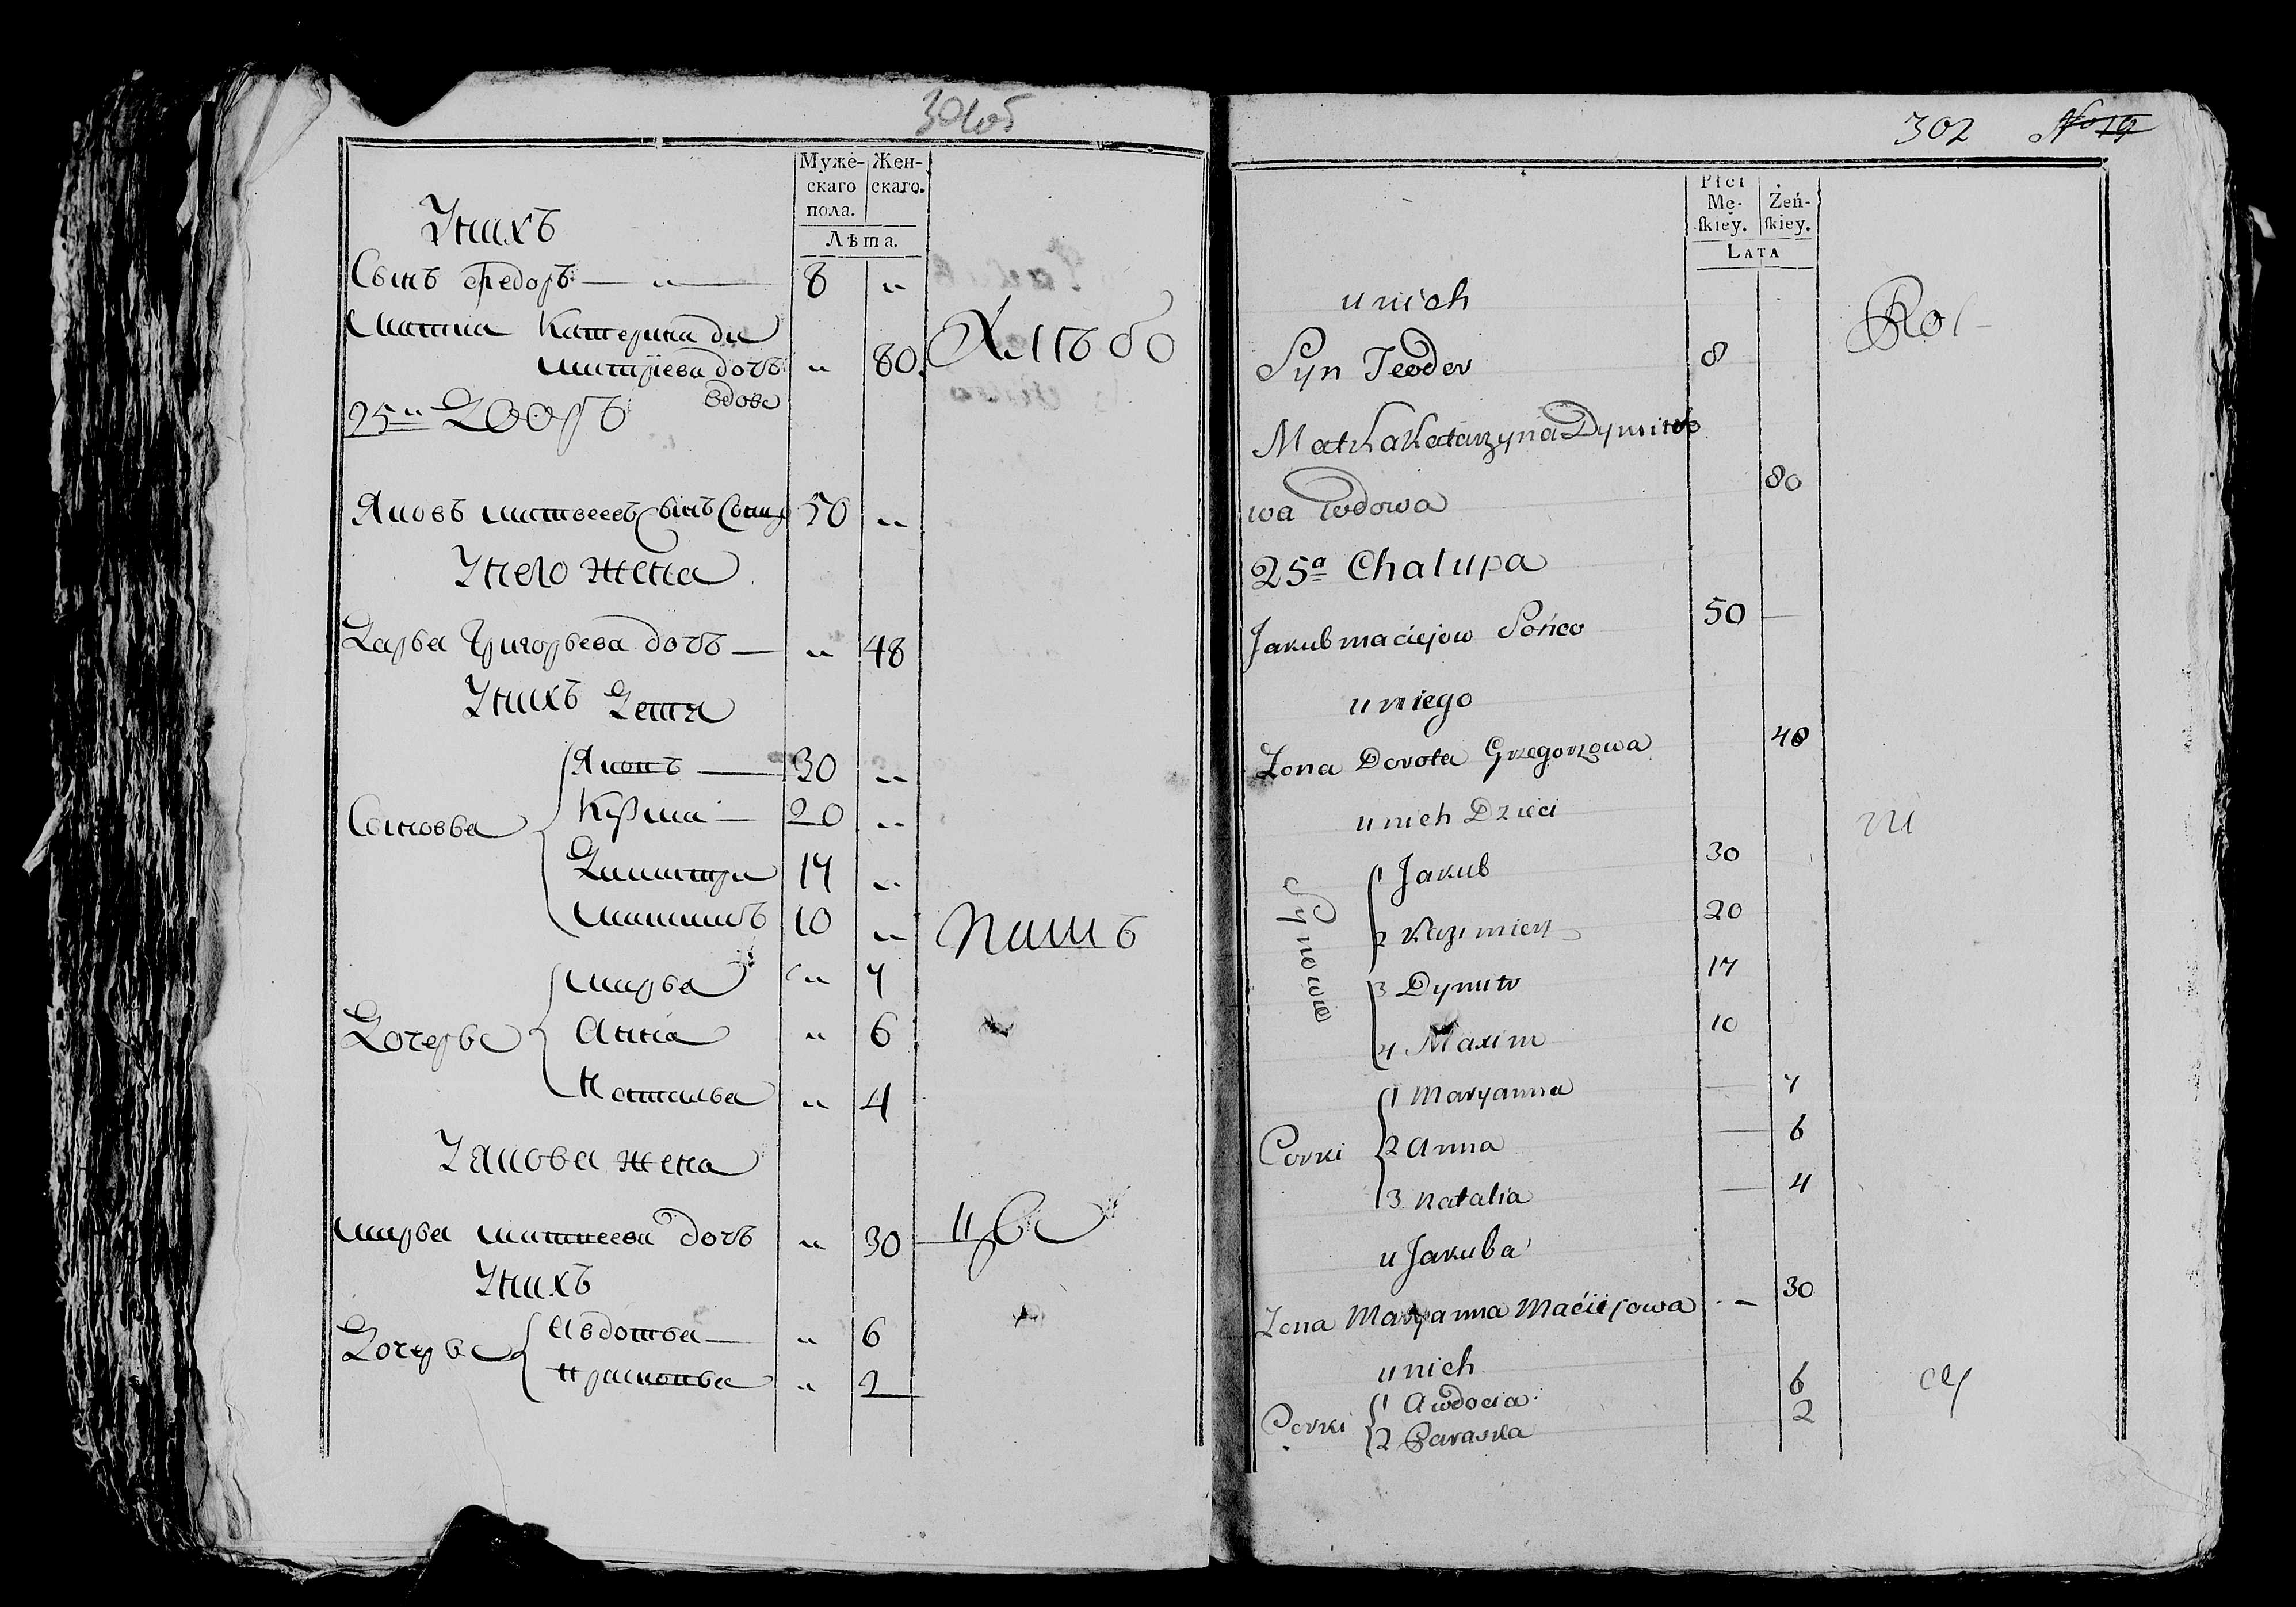 301об
Муже- Жен-
скаго скаго.
пола.
Лѣта.
Унихъ
Сынъ Федоръ — " — 8 "
Матка Катерина ди
митріева дочь " 80 Хлѣбо
вдова
25й Дворъ
Яковъ матвеевъ сынъ 50 "
Унего жена
Дарья Григорьева дочь — " 48
Унихъ Дети
Яковъ — 30 "
Сыновья Кузма — 20 "
Димитри 17 "
Максимъ 10 "
пашъ
марья " 7
Дочерьи Анна " 6
Наталья " 4
Уякова жена
марья матвеева дочь " 30 цы
Унихъ
Дочерьи Авдотья — " 6
Прасковья " 2
302 No 19
Płci
Mę- Żeń-
skiey. skiey.
LATA
u nich
Rol-
Syn Teodor 8
Matka Katarzyna Dymitro
wa wdowa 80
25a Chalupa
Jakub maciejow Sońco 50 —
u niego
Zona Dorota Grzegorzowa 48
u nich Dzieci
ni
Synowie
1 Jakub 30
2 Kazimierz 20
3 Dymitr 17
4 Maxim 10
1 Maryanna — 7
Corki 2 Anna — 6
3 Natalia — 4
u Jakuba
Zona Maryanna Maciejowa - — 30
u nich
Corki 1 Awdocia 6
2 Paraska 2
cy